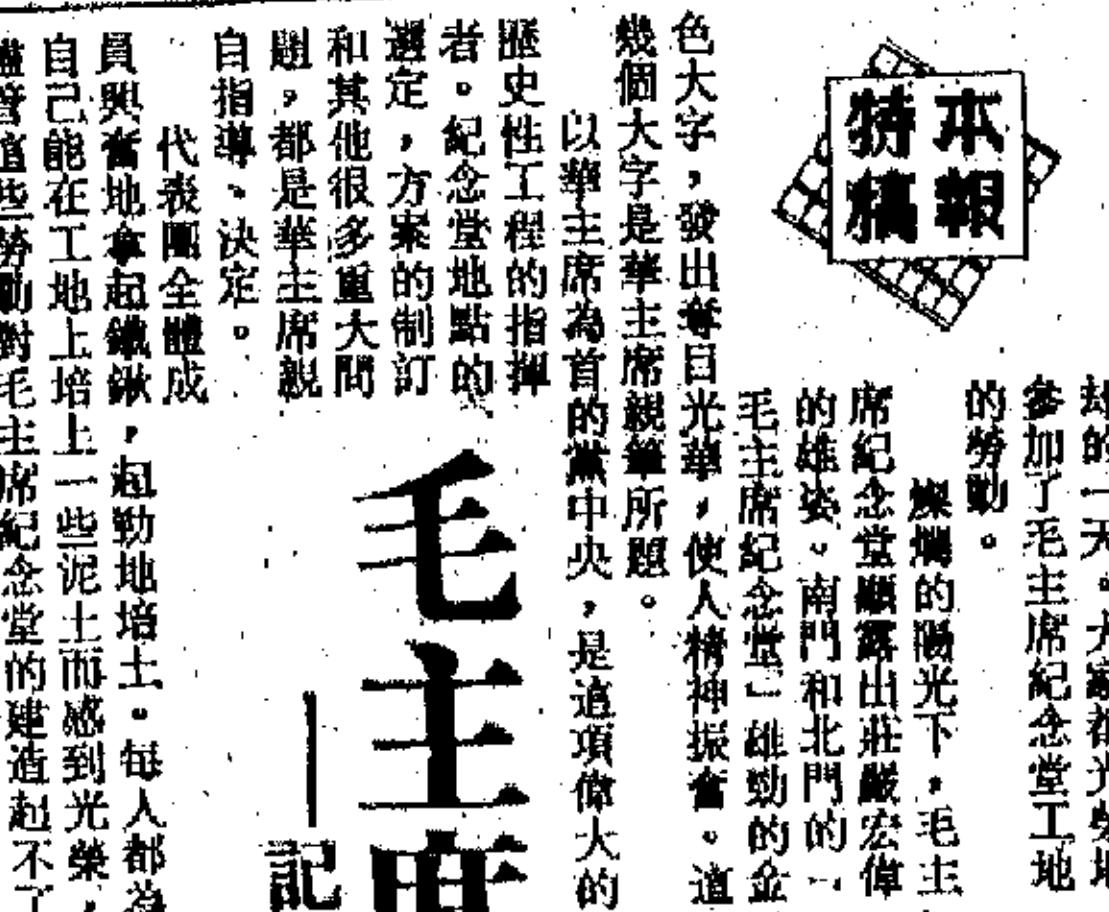 本報
特稿
却的一天。大家都光榮地
參加了毛主席紀念堂工地
的勞動。
燦爛的陽光下，毛主
席紀念堂顯露出莊嚴宏偉
的雄姿。南門和北門的「
毛主席紀念堂」雄勁的金
色大字，發出奪目光華，使人精神振奮。這
幾個大字是華主席親筆所題。
以華主席為首的黨中央，是這項偉大的
歷史性工程的指揮
者。紀念堂地點的
選定，方案的制訂
和其他很多重大問
題，都是華主席親
自指導、決定。
毛主席
——記
代表團全體成
員興奮地拿起鐵鍬，起勁地培土。每人都為
自己能在工地上培上一些泥土而感到光榮，
儘管這些勞動對毛主席紀念堂的建造起不了